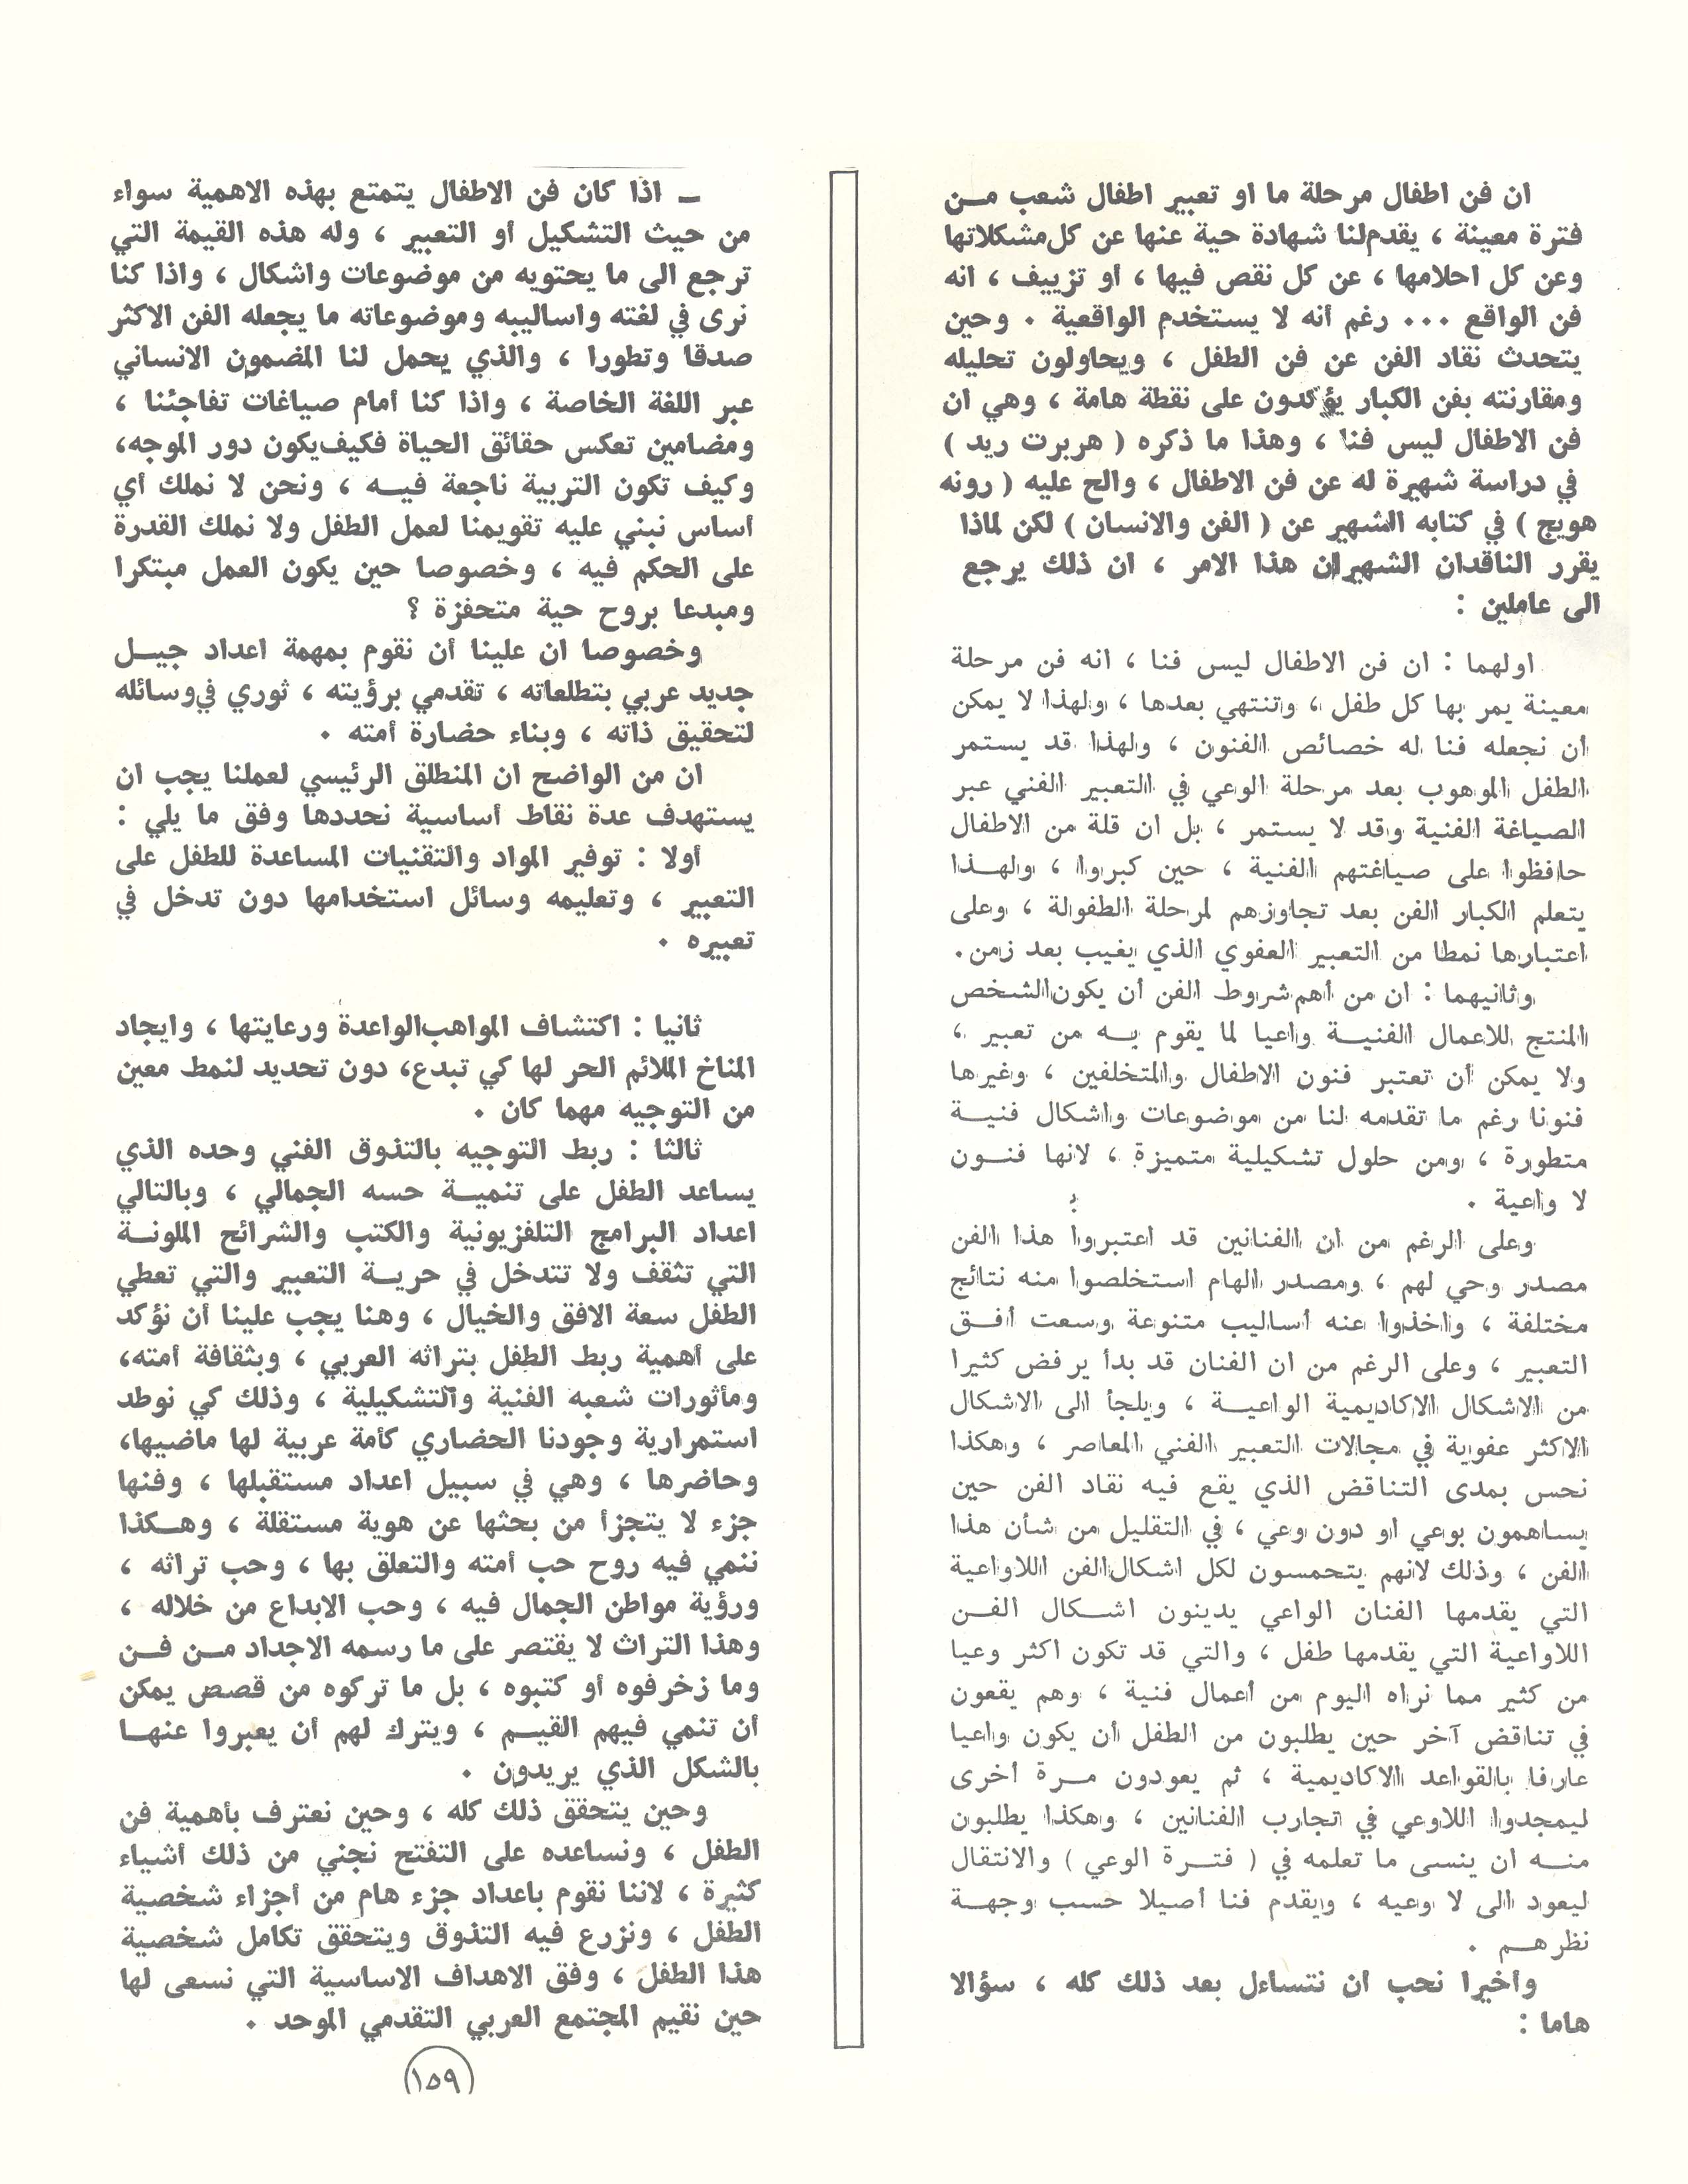 ان فن اطفال مرحلة ما او تعبير اطفال شعب مـن
فترة معينة ، يقدم لنا شهادة حية عنها عن كل مشكلاتها
وعن كل احلامها ، عن كل نقص فيها ، أو تزييف ، انه
فن الواقع ... رغم أنه لا يستخدم الواقعية . وحين
يتحدث نقاد الفن عن فن الطفل ، ويحاولون تحليله
ومقارنته بفن الكبار يؤكدون على نقطة هامة ، وهي ان
فن الاطفال ليس فنا ، وهذا ما ذكره ( هربرت ريد )
في دراسة شهيرة له عن فن الاطفال ، والح عليه ( رونه
هويج ) في كتابه الشهير عن ( الفن والانسان ) لكن لماذا
يقرر الناقدان الشهيران هذا الامر ، ان ذلك يرجع
الى عاملين :
اولهما : ان فن الاطفال ليس فنا ، انه فن مرحلة
معينة يمر بها كل طفل ، وتنتهي بعدها ، ولهذا لا يمكن
أن نجعله فنا له خصائص الفنون ، ولهذا قد يستمر
الطفل الموهوب بعد مرحلة الوعي في التعبير الفني عبر
الصياغة الفنية وقد لا يستمر ، بل ان قلة من الاطفال
حافظوا على صياغتهم الفنية ، حين كبروا ، ولهـذا
يتعلم الكبار الفن بعد تجاوزهم لمرحلة الطفولة ، وعلى
اعتبارها نمطا من التعبير العفوي الذي يغيب بعد زمن.
وثانيهما : ان من أهم شروط الفن أن يكون الشخص
المنتج للاعمال الفنيـة واعيا لما يقوم بـه من تعبير ،
ولا يمكن أن تعتبر فنون الاطفال والمتخلفين ، وغيرها
فنونا رغم ما تقدمه لنا من موضوعات واشكال فنيـة
متطورة ، ومن حلول تشكيلية متميزة ، لانها فنـون
لا واعية .
وعلى الرغم من ان الفنانين قد اعتبروا هذا الفن
مصدر وحي لهم ، ومصدر الهام استخلصوا منه نتائج
مختلفة ، واخذوا عنه أساليب متنوعة وسعت أفـق
التعبير ، وعلى الرغم من ان الفنان قد بدأ يرفض كثيرا
من الاشكال الاكاديمية الواعيـة ، ويلجأ الى الاشكال
الاكثر عفوية في مجالات التعبير الفني المعاصر ، وهكذا
نحس بمدى التناقض الذي يقع فيه نقاد الفن حين
يساهمون بوعي او دون وعي ، في التقليل من شأن هذا
الفن ، وذلك لانهم يتحمسون لكل اشكال الفن اللاواعية
التي يقدمها الفنان الواعي يدينون اشـكال الفـن
اللاواعية التي يقدمها طفل ، والتي قد تكون اكثر وعيا
من كثير مما نراه اليوم من أعمال فنية ، وهم يقعون
في تناقض آخر حين يطلبون من الطفل أن يكون واعيا
عارفا بالقواعد الاكاديمية ، ثم يعودون مـرة أخرى
ليمجدوا اللاوعي في تجارب الفنانين ، وهكذا يطلبون
منـه ان ينسى ما تعلمه في ( فتـرة الوعي ) والانتقال
ليعود الى لا وعيه ، ويقدم فنا أصيلا حسب وجهـة
نظرهـم .
وأخيرا نحب ان نتساءل بعد ذلك كله ، سؤالا
هاما :
ـ اذا كان فن الاطفال يتمتع بهذه الاهمية سواء
من حيث التشكيل أو التعبير ، وله هذه القيمة التي
ترجع الى ما يحتويه من موضوعات واشكال ، واذا كنا
نرى في لغته واساليبه وموضوعاته ما يجعله الفن الاكثر
صدقا وتطورا ، والذي يحمل لنا المضمون الانساني
عبر اللغة الخاصة ، واذا كنا أمام صياغات تفاجئنا ،
ومضامين تعكس حقائق الحياة فكيف يكون دور الموجه،
وكيف تكون التربية ناجعة فيـه ، ونحن لا نملك أي
أساس نبني عليه تقويمنا لعمل الطفل ولا نملك القدرة
على الحكم فيه ، وخصوصا حين يكون العمل مبتكرا
ومبدعا بروح حية متحفزة ؟
وخصوصا ان علينا أن نقوم بمهمة اعداد جيـل
جديد عربي بتطلعاته ، تقدمي برؤيته ، ثوري في وسائله
لتحقيق ذاته ، وبناء حضارة أمته .
ان من الواضح ان المنطلق الرئيسي لعملنا يجب ان
يستهدف عدة نقاط أساسية نحددها وفق ما يلي :
أولا : توفير المواد والتقنيات المساعدة للطفل على
التعبير ، وتعليمه وسائل استخدامها دون تدخل في
تعبيره .
ثانيا : اكتشاف المواهب الواعدة ورعايتها ، وايجاد
المناخ الملائم الحر لها كي تبدع، دون تحديد لنمط معين
من التوجيه مهما كان .
ثالثا : ربط التوجيه بالتذوق الفني وحده الذي
يساعد الطفل على تنميـة حسه الجمالي ، وبالتالي
اعداد البرامج التلفزيونية والكتب والشرائح الملونـة
التي تثقف ولا تتدخل في حريـة التعبير والتي تعطي
الطفل سعة الافق والخيال ، وهنا يجب علينا أن نؤكد
على أهمية ربط الطفل بتراثه العربي ، وبثقافة أمته،
ومأثورات شعبه الفنية والتشكيلية ، وذلك كي نوطد
استمرارية وجودنا الحضاري كأمة عربية لها ماضيها،
وحاضرها ، وهي في سبيل اعداد مستقبلها ، وفنها
جزء لا يتجزأ من بحثها عن هوية مستقلة ، وهـكذا
ننمي فيه روح حب أمته والتعلق بها ، وحب تراثه ،
ورؤية مواطن الجمال فيه ، وحب الابداع من خلاله ،
وهذا التراث لا يقتصر على ما رسمه الاجداد مـن فـن
وما زخرفوه أو كتبوه ، بل ما تركوه من قصص يمكن
أن تنمي فيهم القيـم ، ويترك لهم أن يعبروا عنهـا
بالشكل الذي يريدون .
وحين يتحقق ذلك كله ، وحين نعترف بأهمية فن
الطفل ، ونساعده على التفتح نجني من ذلك أشياء
كثيرة ، لاننا نقوم باعداد جزء هام من أجزاء شخصية
الطفل ، ونزرع فيه التذوق ويتحقق تكامل شخصية
هذا الطفل ، وفق الاهداف الاساسية التي نسعى لها
حين نقيم المجتمع العربي التقدمي الموحد .
(١٥٩)